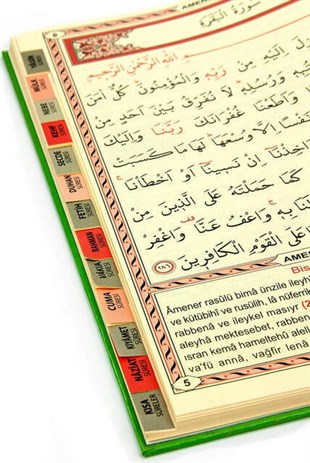 AMENER
سُورَةُ الْبَقَرَةِ
بِسْمِ اللّٰهِ الرَّحْمٰنِ الرَّحِيمِ
اِلَيْهِ مِنْ رَبِّهِ وَالْمُؤْمِنُونَ كُلٌّ اٰمَنَ
وَرُسُلِهِ لَا نُفَرِّقُ بَيْنَ اَحَدٍ مِنْ
وَاَطَعْنَا غُفْرَانَكَ رَبَّنَا وَاِلَيْكَ
نَفْسًا اِلَّا وُسْعَهَا لَهَا مَا كَسَبَتْ
اِنْ نَسِينَا اَوْ اَخْطَأْنَا
كَمَا حَمَلْتَهُ عَلَى الَّذِينَ مِنْ
بِهِ وَاعْفُ عَنَّا وَاغْفِرْ
عَلَى الْقَوْمِ الْكَافِرِينَ ﴿٢٨٦﴾
AMENE
Bis
Âmener rasûlü bimâ ünzile ileyh
ve kütübihî ve rusülih, lâ nüferrik
rabbenâ ve ileykel masıyr (2
aleyhâ mektesebet, rabben
ısran kemâ hameltehû alel
va'fü annâ, vağfir lenâ
5
YÂSİN SÛRESİ
MÜLK SÛRESİ
NEBE SÛRESİ
KEHF SÛRESİ
SECDE SÛRESİ
DUHAN SÛRESİ
FETİH SÛRESİ
RAHMAN SÛRESİ
VAKIA SÛRESİ
CUMA SÛRESİ
KIYAMET SÛRESİ
NÂZİAT SÛRESİ
KISA SÛRELER